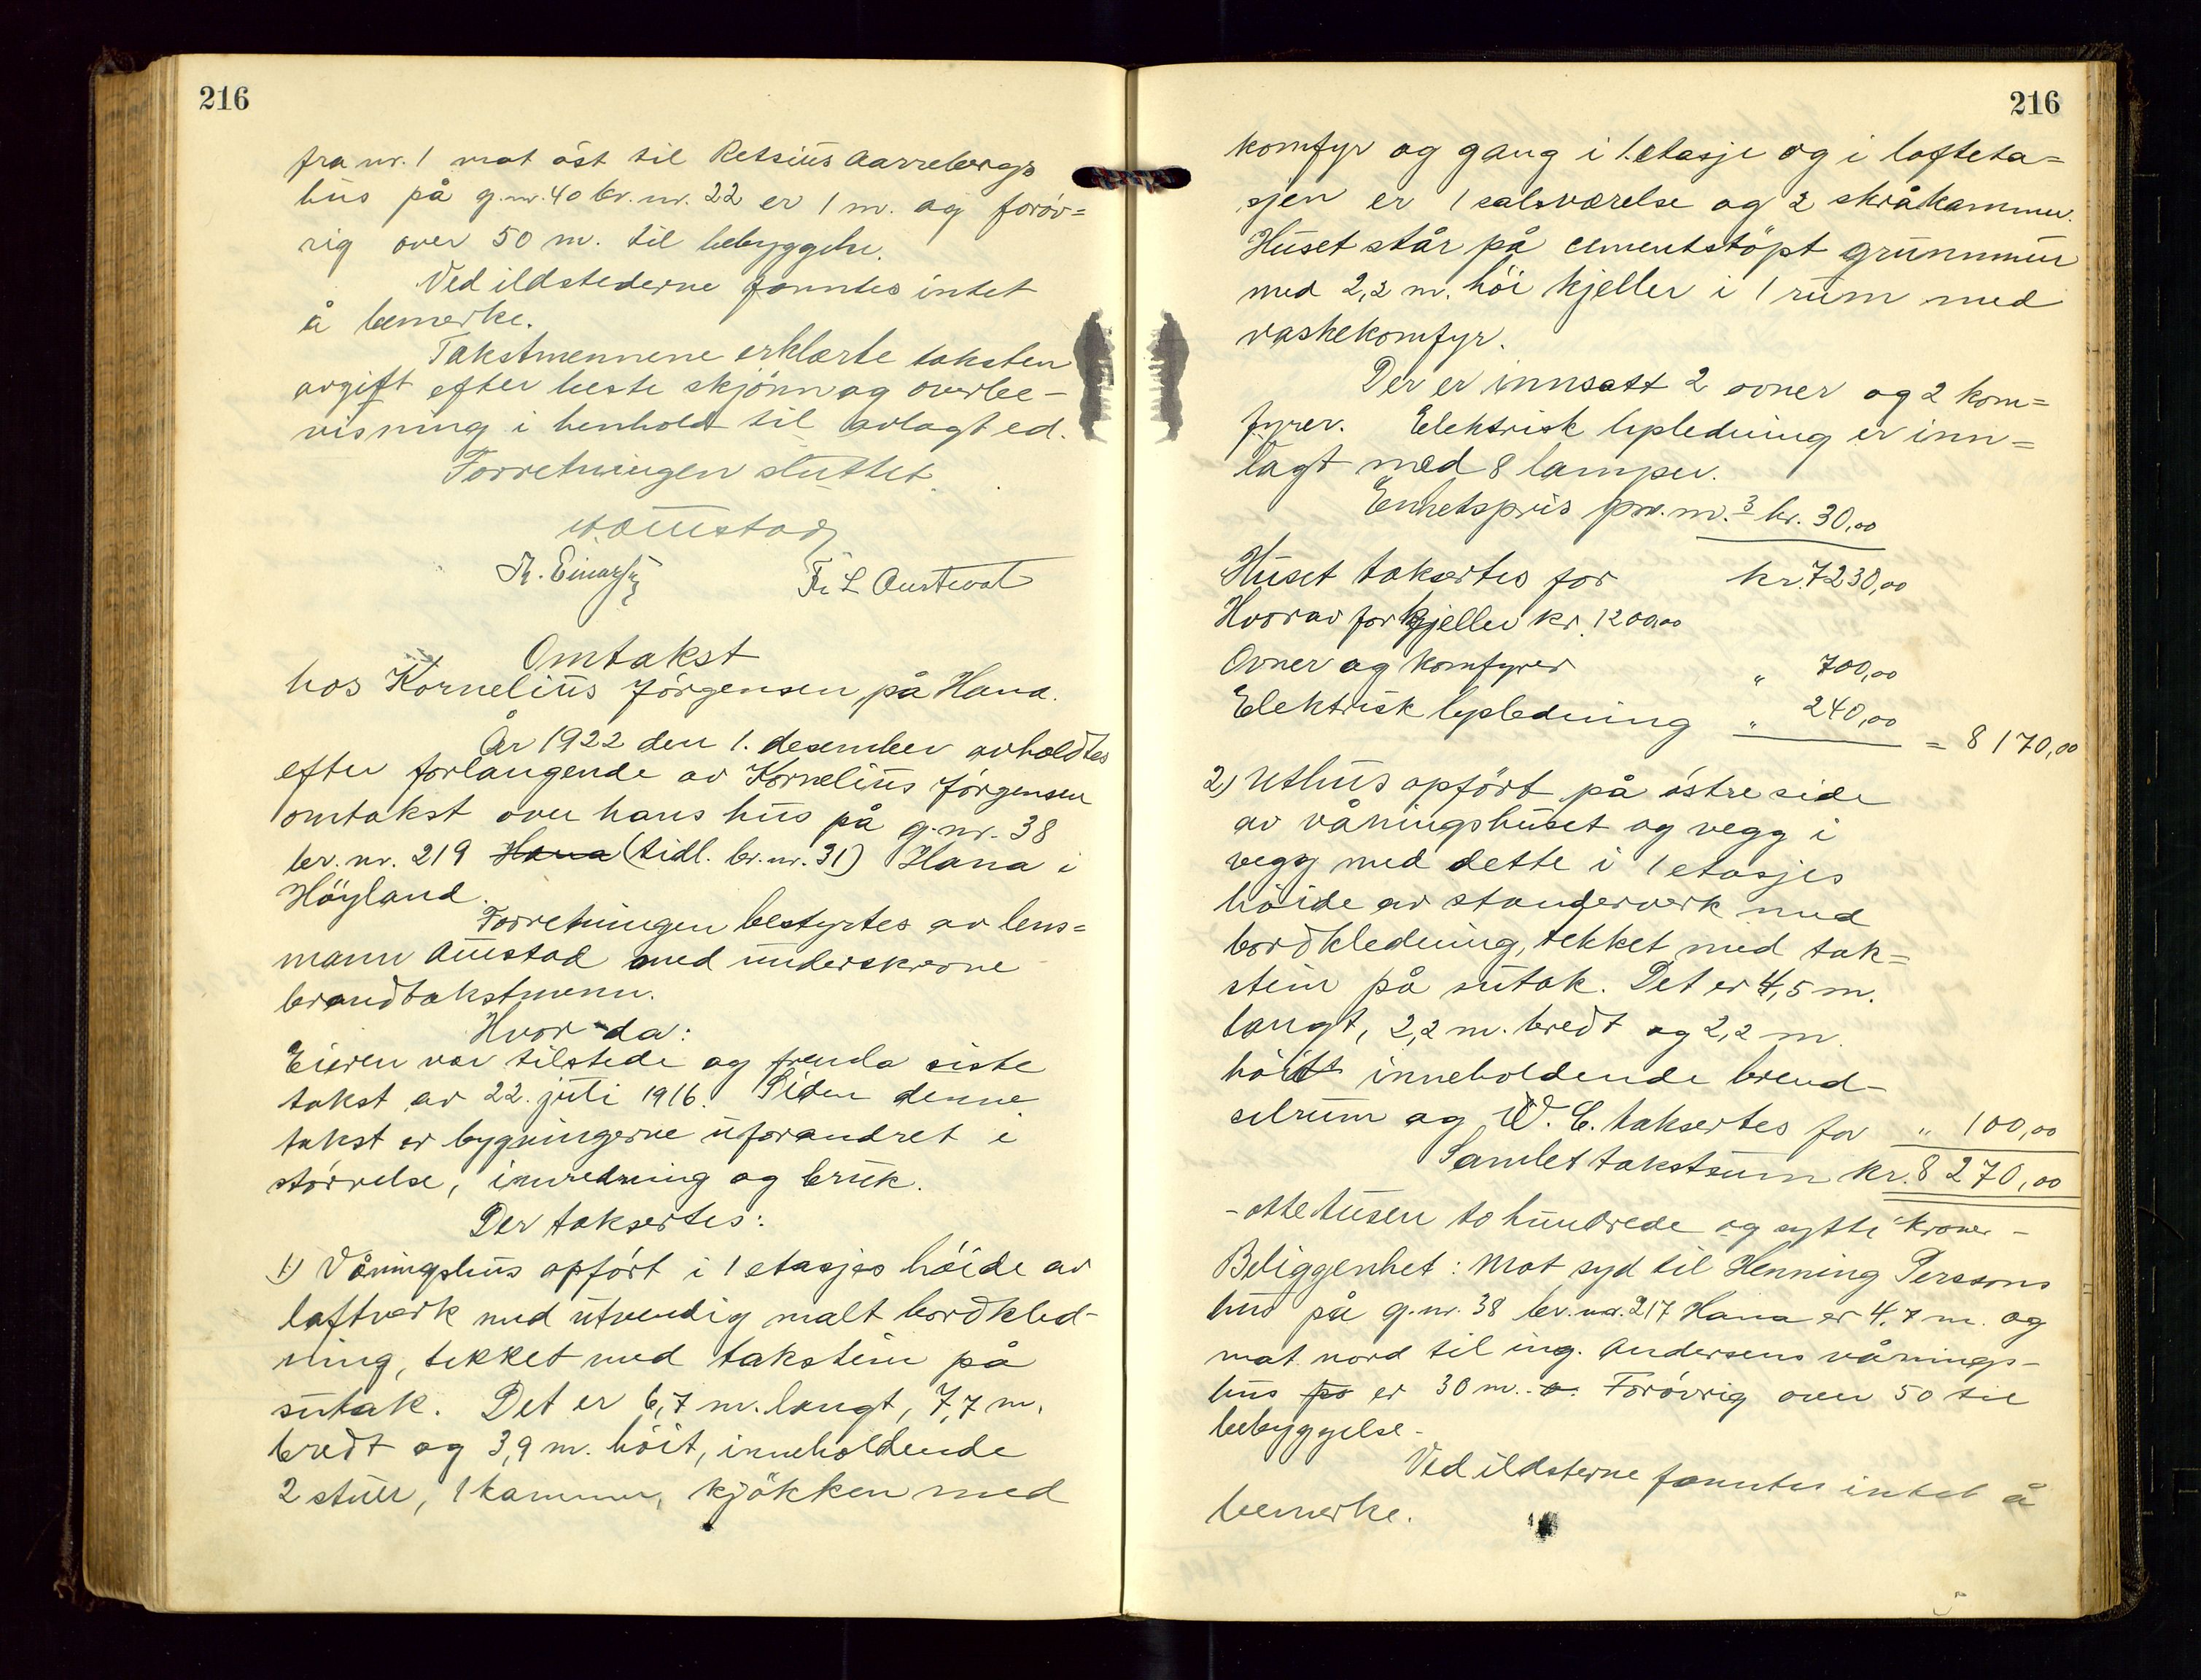 216
fra nr. 1 mot öst til Retsius Aarrebergs
hus på g.nr. 40 br. nr. 22 er 1 m. og forøv=
rig over 50 m. til bebyggelse.
Ved ildstederne fanntes intet
å bemerke.
Takstmennene erklærte taksten
avgitt efter beste skjönn og overbe-
visning i henhold til avlagt ed.
Forretningen sluttet.
Auestad
Th. Einarsen
Fr L Austvoll
Omtakst
hos Kornelius Jörgensen på Hana.
År 1922 den 1. desember avholdtes
efter forlangende av Kornelius Jörgensen
omtakst over hans hus på g.nr. 38
br. nr. 219 Hana (tidl. br. nr. 31) Hana i
Höyland.
Forretningen bestyrtes av lens=
mann Auestad med underskrevne
brandtakstmenn.
Hvor da:
Eieren var tilstede og fremla siste
takst av 22. juli 1916. Siden denne
takst er bygningerne uforandret i
störrelse, innredning og bruk.
Der taksertes:
1) Våningshus opfört i 1 etasjes höide av
laftverk med utvendig malt bordkled-
ning, tekket med takstein på
sutak. Det er 6,7 m. langt, 7,7 m.
bredt og 3,9 m. höit, inneholdende
2 stuer, 1 kammer, kjökken med
216
komfyr og gang i 1. etasje og i lofteta=
sjen er 1 salsværelse og 2 skråkammer.
Huset står på cementstöpt grunnmur
med 2,2 m. höi kjeller i 1 rum med
vaskekomfyr.
Der er innsatt 2 ovner og 2 kom=
fyrer. Elektrisk lysledning er inn=
lagt med 8 lamper.
Enhetspris pr. m.3 kr. 30,00
Huset taksertes for kr. 7230,00
Hvorav for kjeller kr. 1200,00
Ovner og komfyrer " 700,00
Elektrisk lysledning " 240,00 = 8170,00
2) Uthus opfört på östre side
av våningshuset og vegg i
vegg med dette i 1 etasjes
höide av standerverk med
bordkledning, tekket med tak=
stein på sutak. Det er 4,5 m.
langt, 2,2 m. bredt og 2,2 m.
höit inneholdende brend-
selrum og W. C. taksertes for " 100,00
Samlet takstsum kr. 8270,00
- otte tusen to hundrede og sytti kroner -
Beliggenhet: Mot syd til Henning Perssons
hus på g.nr. 38 br. nr. 217 Hana er 4,7 m. og
mot nord til ing. Andersens vånings-
hus på er 30 m. o. Forövrig over 50 til
bebyggelse.
Ved ildsterne fanntes intet å
bemerke.